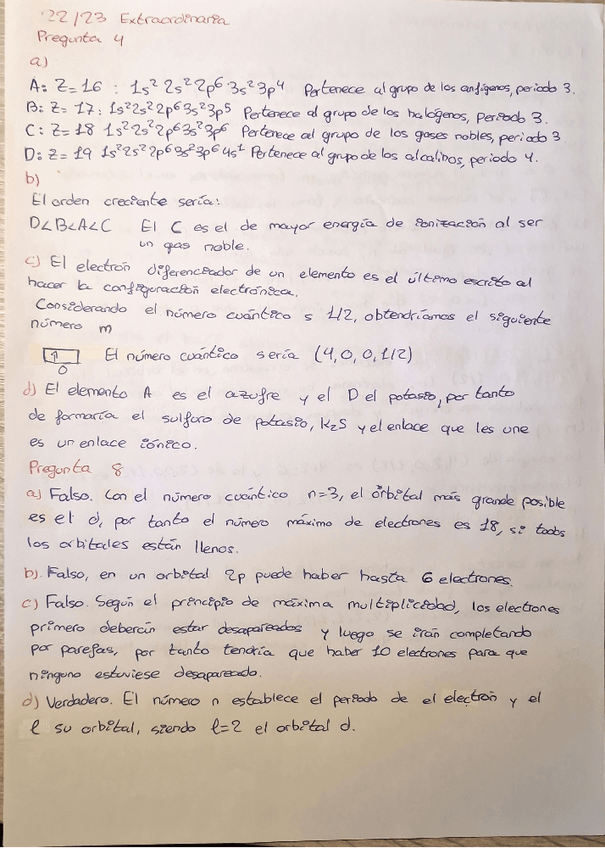 22/23 Extraordinaria
Pregunta 4
a)
A: Z=16 : 1s² 2s² 2p⁶ 3s² 3p⁴ Pertenece al grupo de los anfígenos, periodo 3.
B: Z= 17: 1s² 2s² 2p⁶ 3s² 3p⁵ Pertenece al grupo de los halógenos, Periodo 3.
C: Z=18 1s² 2s² 2p⁶ 3s² 3p⁶ Pertenece al grupo de los gases nobles, periodo 3
D: Z= 19 1s² 2s² 2p⁶ 3s² 3p⁶ 4s¹ Pertenece al grupo de los alcalinos, periodo 4.
b)
El orden creciente sería:
D<B<A<C El C es el de mayor energía de ionización al ser
un gas noble.
c) El electrón diferenciador de un elemento es el último escrito al
hacer la configuración electrónica.
Considerando el número cuántico s 1/2, obtendríamos el siguiente
número m
↑ El número cuántico sería (4,0,0,1/2)
0
d) El elemento A es el azufre y el D el potasio, por tanto
de formaría el sulfuro de potasio, K₂S y el enlace que les une
es un enlace iónico.
Pregunta 8
a) Falso. Con el número cuántico n=3, el órbital más grande posible
es el d, por tanto el número máximo de electrones es 18, si todos
los orbitales están llenos.
b). Falso, en un orbital 2p puede haber hasta 6 electrones.
c) Falso. Según el principio de máxima multiplicidad, los electrones
primero deberán estar desapareados y luego se irán completando
por parejas, por tanto tendría que haber 10 electrones para que
ninguno estuviese desapareado.
d) Verdadero. El número n establece el periodo de el electrón y el
l su orbital, siendo l=2 el orbital d.